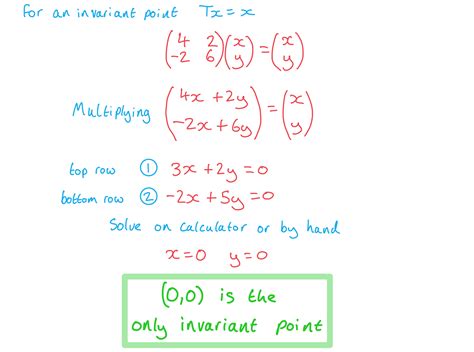 For an invariant point Tx = x
(4 2
-2 6)(x
y) = (x
y)
Multiplying (4x + 2y
-2x + 6y) = (x
y)
top row ① 3x + 2y = 0
bottom row ② -2x + 5y = 0
Solve on calculator or by hand
x = 0 y = 0
(0,0) is the
only invariant point